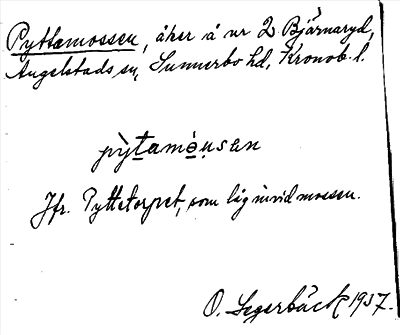 Pyttamossen, åker å nr 2 Bjärnaryd,
Angelstads sn, Sunnerbo hd, Kronob. l.
pỳtamò̱u̱sen
Jfr. Pyttetorpet, som låg invid mossen.
O. Segerbäck 1937.